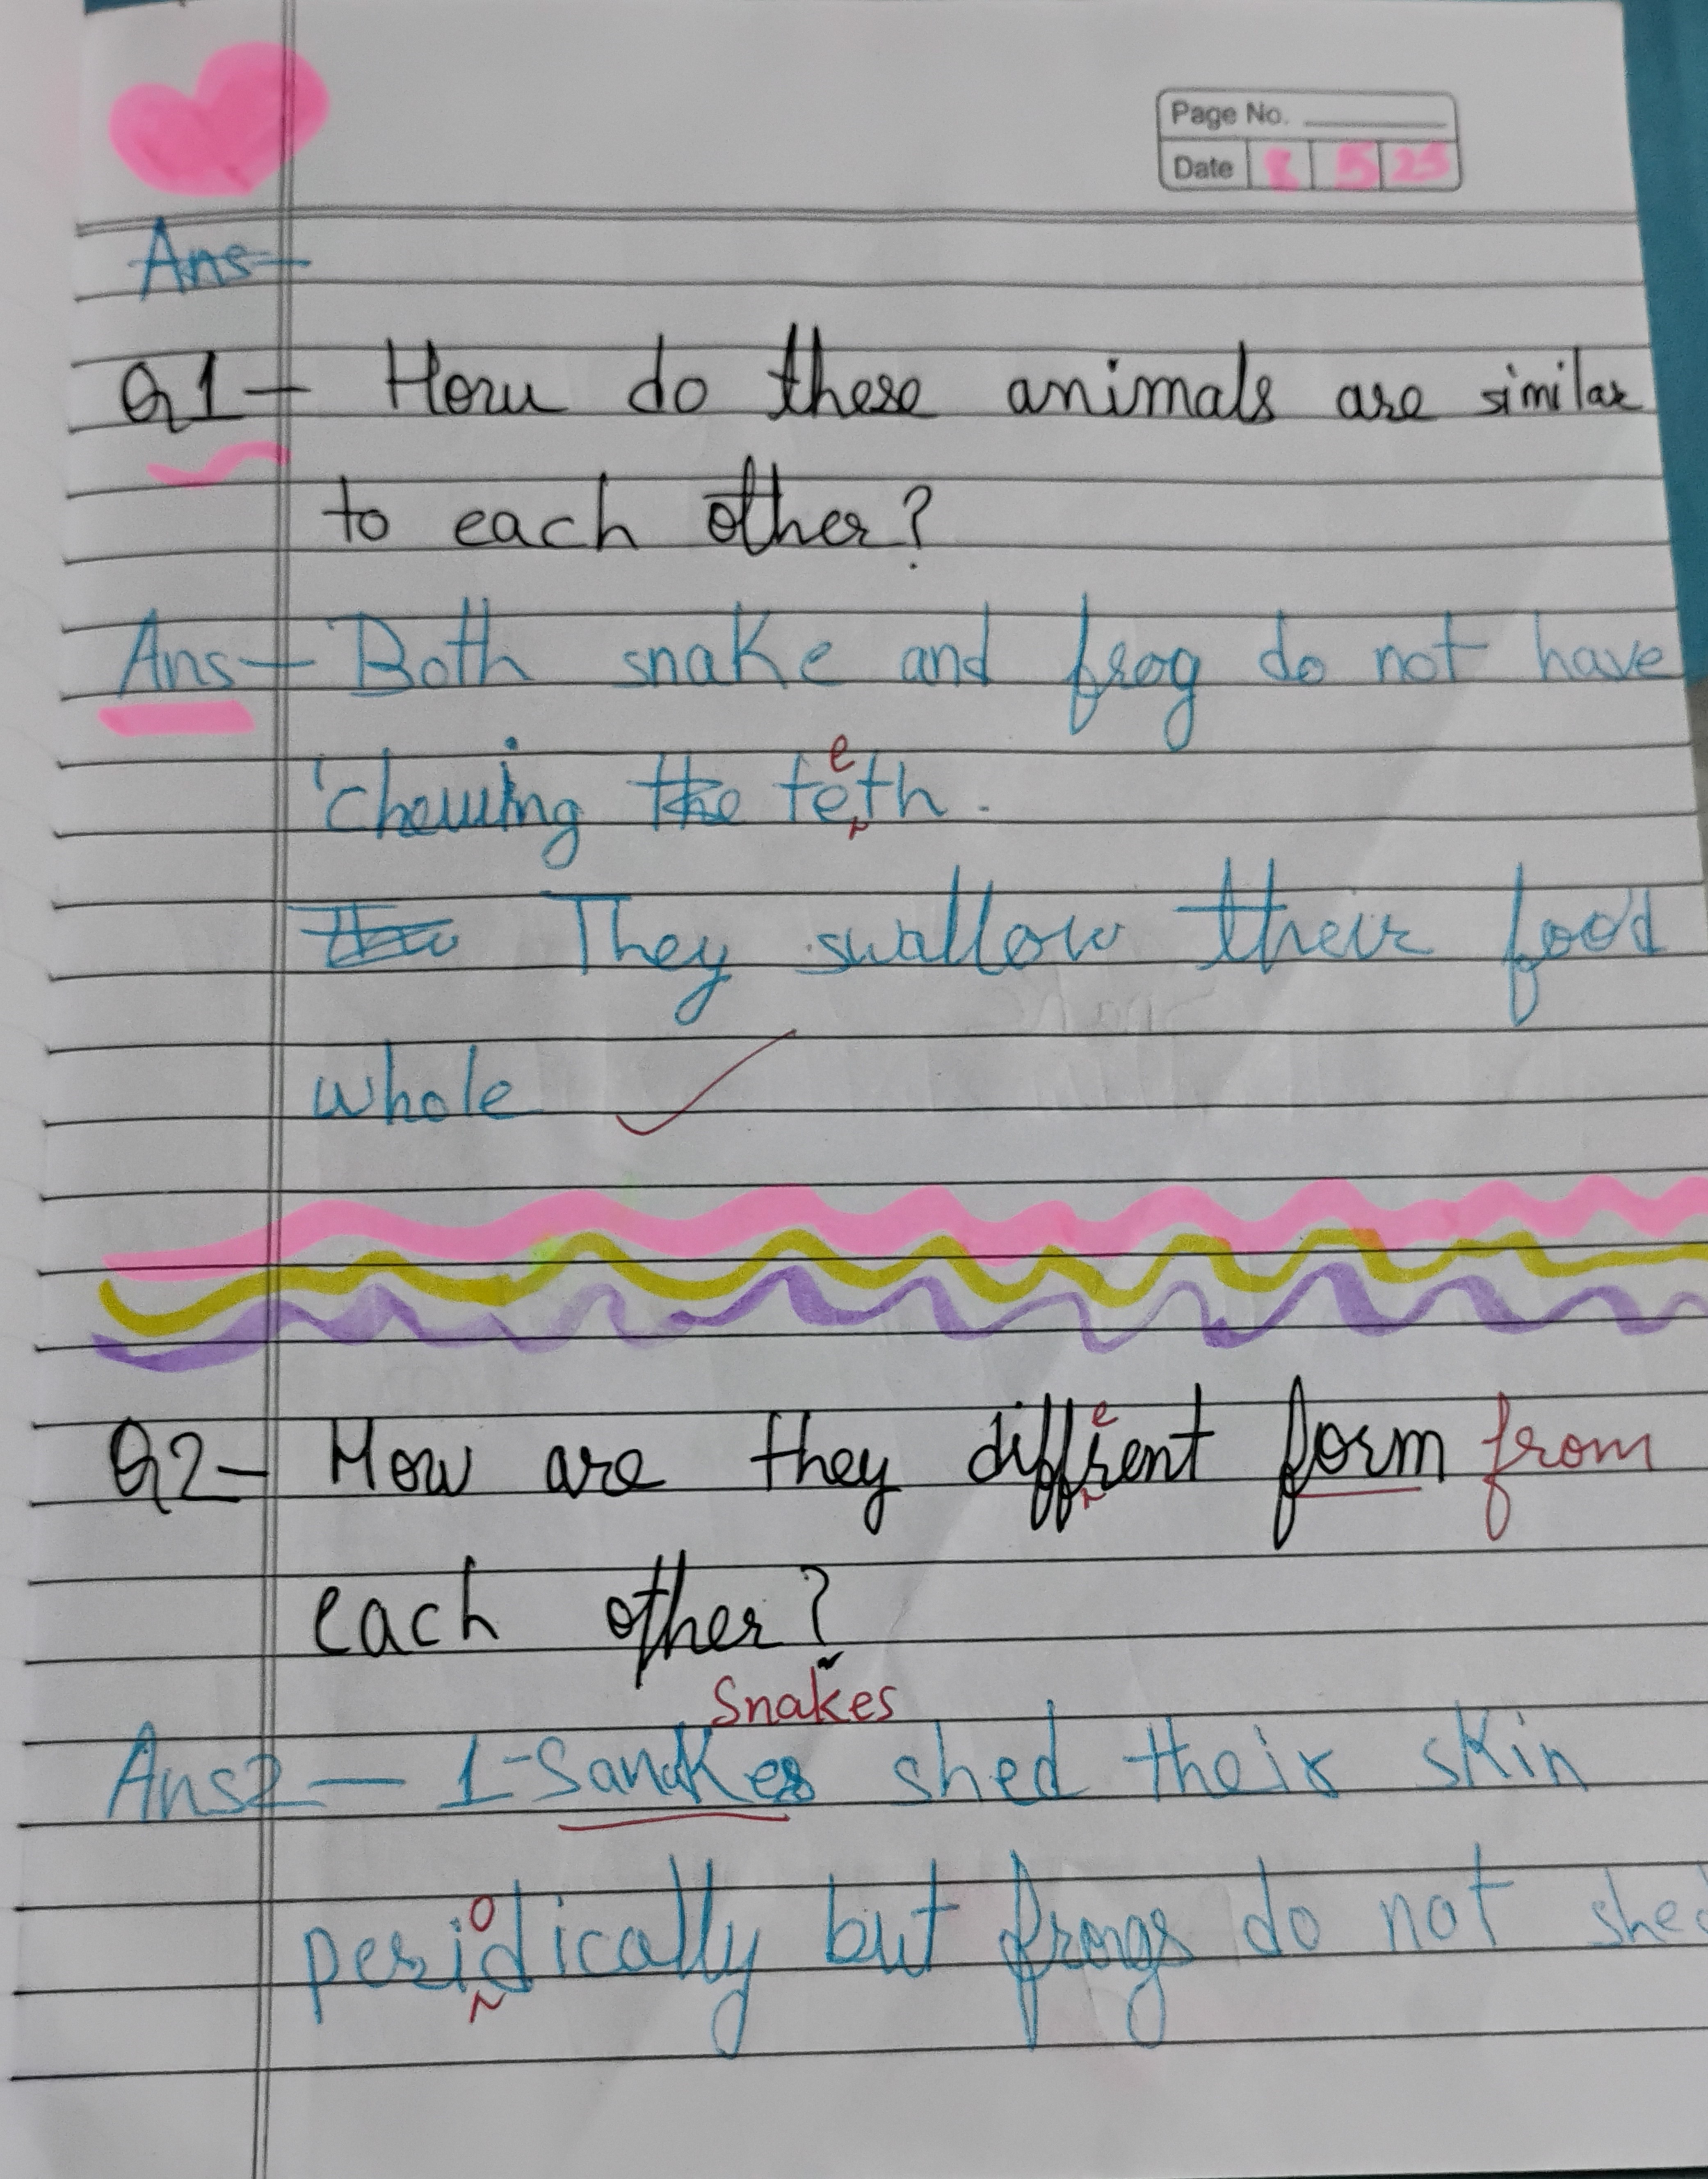 Page No.
Date 8 5 25
Ans-
Q1- How do these animals are similar
to each other?
Ans- Both snake and frog do not have
e
'chewing the teth.
They swallow their food
whole
e
Q2- How are they diffrent form from
each other?
Snakes
Ans2 - 1- Sanakes shed their skin
o
peridically but frongs do not shed